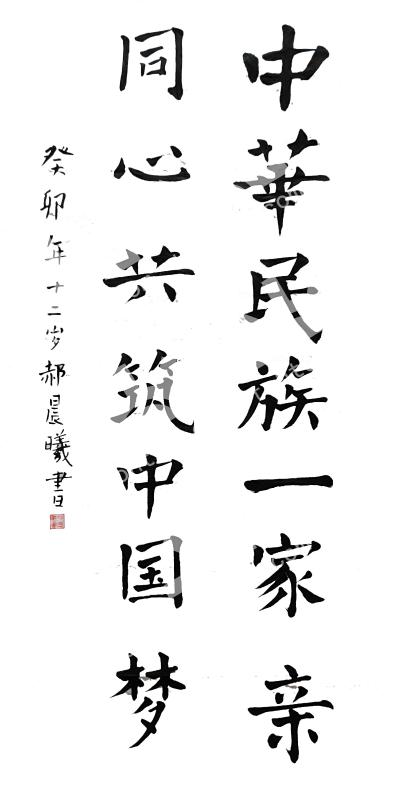 中華民族一家亲
同心共筑中国梦
癸卯年十二岁郝晨曦書